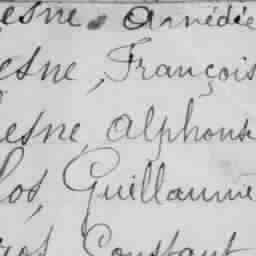 esne Amédée
esne, François
esne Alphonse
los, Guillaume
ros Constant